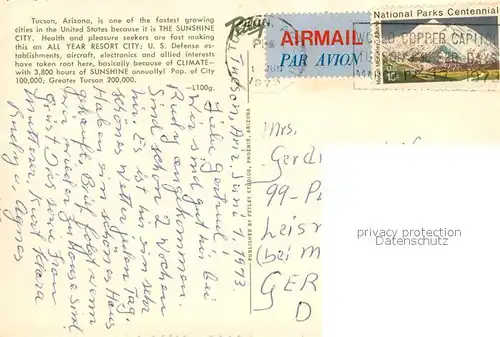 Tucson, Arizona, is one of the fastest growing
cities in the United States because it is THE SUNSHINE
CITY. Health and pleasure seekers are fast making
this an ALL YEAR RESORT CITY; U. S. Defense es-
tablishments, aircraft, electronics and allied interests
have taken root here, basically because of CLIMATE—
with 3,800 hours of SUNSHINE annually! Pop. of City
100,000; Greater Tucson 200,000.
—L100g.
Petley
AIRMAIL
PAR AVION
National Parks Centennial
WORLD COPPER CAPITOL
PUBLISHED BY PETLEY STUDIOS, PHOENIX, ARIZONA
Tucson, Ariz. Juni 1. 1973
Liebe Gertrud,
Wir sind gut hir bei
Rudy angekommen
Sind schon 2 Wochen
hir. Es ist hir ein sehr
schönes Wetter jeden Tag.
Haben sie ein schönes Haus
gekauft. Brief folgt wenn
wir wieder zu Hause sind.
Grust Dos seine Frau
Mutter Kurt Klara
Rudy u. Agnes
Mrs.
Gerdi
99-P
Leisn
(bei M
GER
D
privacy protection
watermark